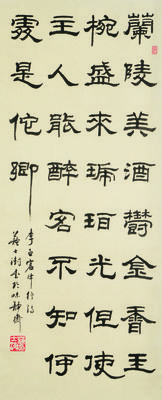 蘭陵美酒欝金香玉
椀盛來琥珀光但使
主人能醉客不知何
處是佗鄉
李白客中行詩
蘇士澍書於